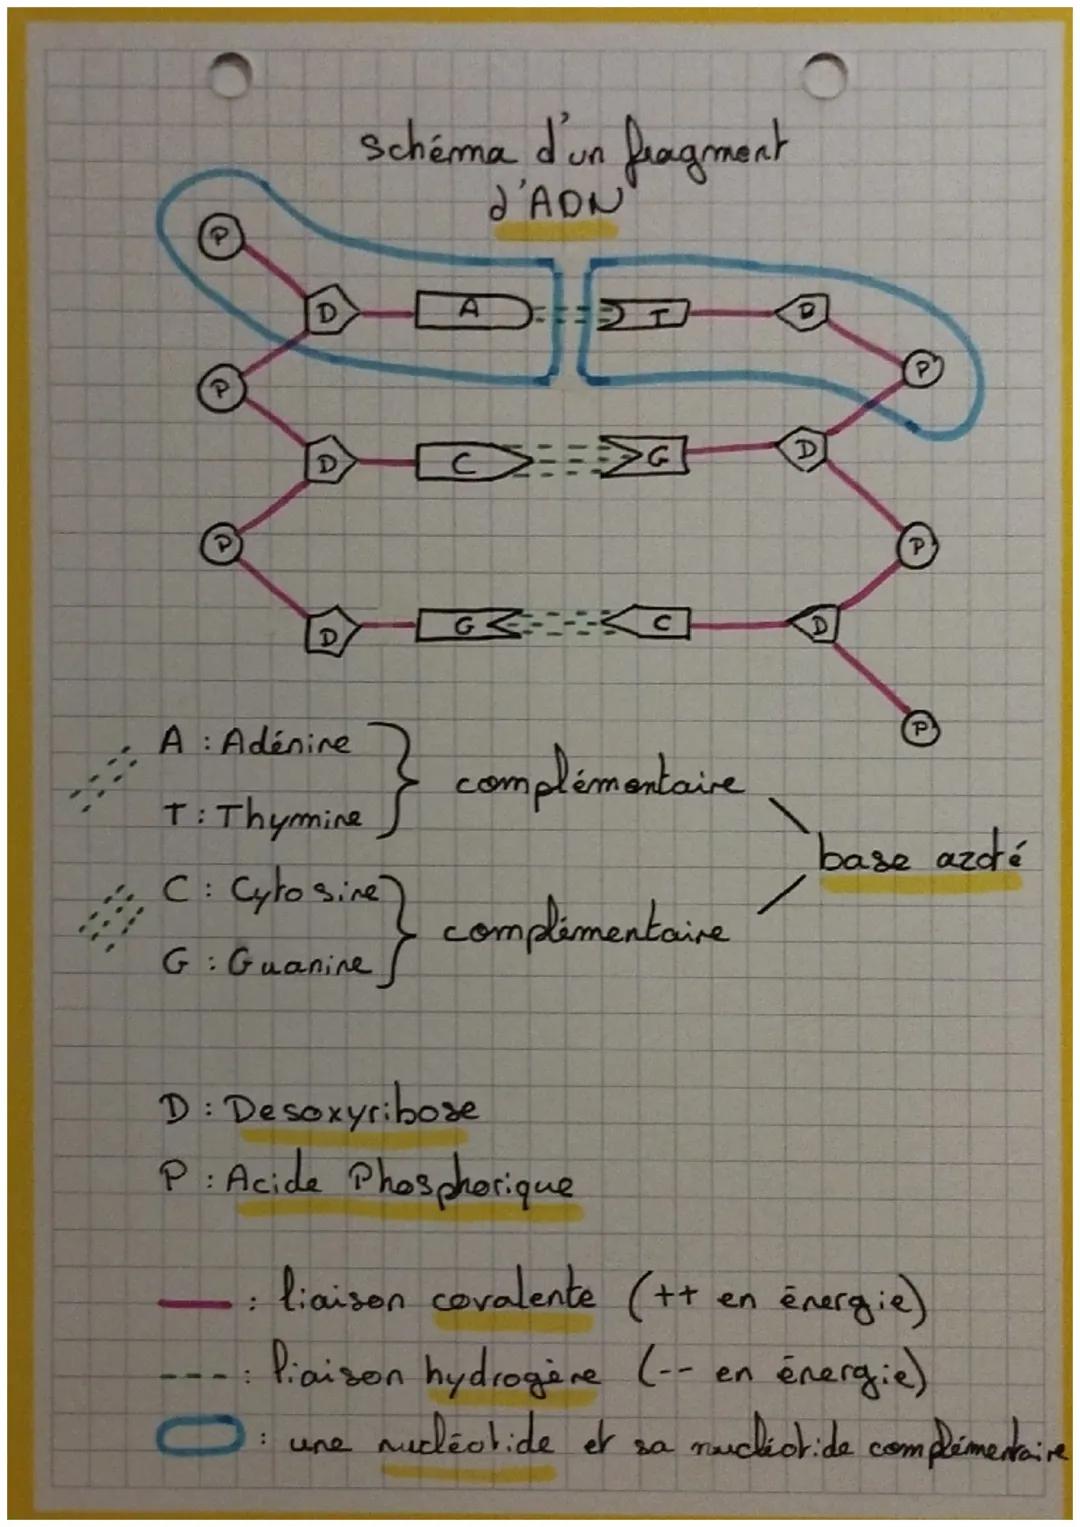 schéma d'un fragment
d'ADN
P
D A T D
P
P
D C G D
P
P
D G C D
P
A : Adénine
complémentaire
T : Thymine
base azoté
C : Cytosine
complémentaire
G : Guanine
D : Desoxyribose
P : Acide Phosphorique
: liaison covalente (++ en énergie)
: liaison hydrogène (-- en énergie)
: une nucléotide et sa nucléotide complémentaire